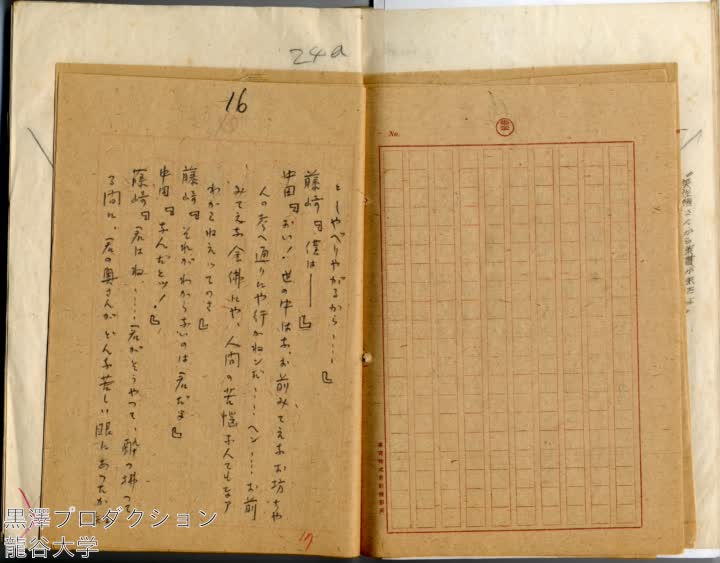 24a
16
としやべりやがるから……』
藤崎『僕は――』
中田『おい! 世の中はな、お前みてえなお坊ちや
人の考へ通りにや行かねンだ……ヘン……お前
みてえな金佛にや、人間の苦悩なんてもなァ
わからねえってのさ』
藤崎『それがわからないのは君だよ』
中田『なんだとッ!』
藤崎『君はね、……君がさうやつて、酔つ拂つて
る間に、君の奥さんがどんな苦しい眼にあつたか
17
No.
東宝
東宝株式會社撮影所
黒澤プロダクション
龍谷大学